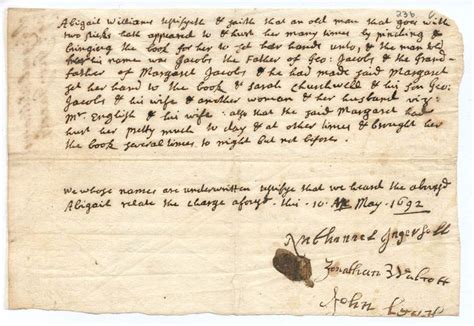 236
Abigail Williams testifyeth & saith that an old man that goes with
two sticks hath appeared to & hurt her many times by pinching &
bringing the book for her to set her hand unto, & the man told
her his name was Jacobs the Father of Geo: Jacobs & the Grand-
father of Margaret Jacobs & he had made said Margaret
set her hand to the book & Sarah Churchwell & his son Geo:
Jacobs & his wife & another woman & her husband viz:
Mr. English & his wife: also that the said Margaret had
hurt her pretty much to day & at other times & brought her
the book several times to night but not before.
We whose names are underwritten testifye that we heard the abovesd
Abigail relate the charge aforesd this 10 May. 1692
Nathanniel Ingersoll
Jonathan Walcott
John